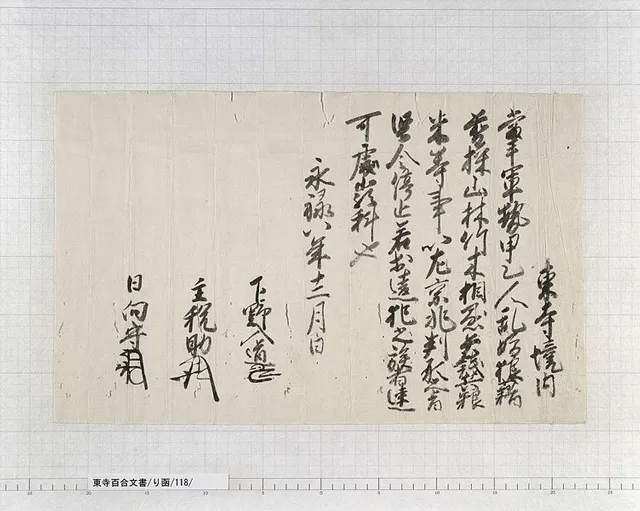 東寺境内
當手軍勢甲乙人乱妨狼藉
并採山林竹木相懸矢銭兵粮
米等事以左京兆判形旨
堅令停止若於違犯之族者速
可處嚴科也
永禄八年十二月日
下野入道
主税助
日向守
東寺百合文書/り函/118/